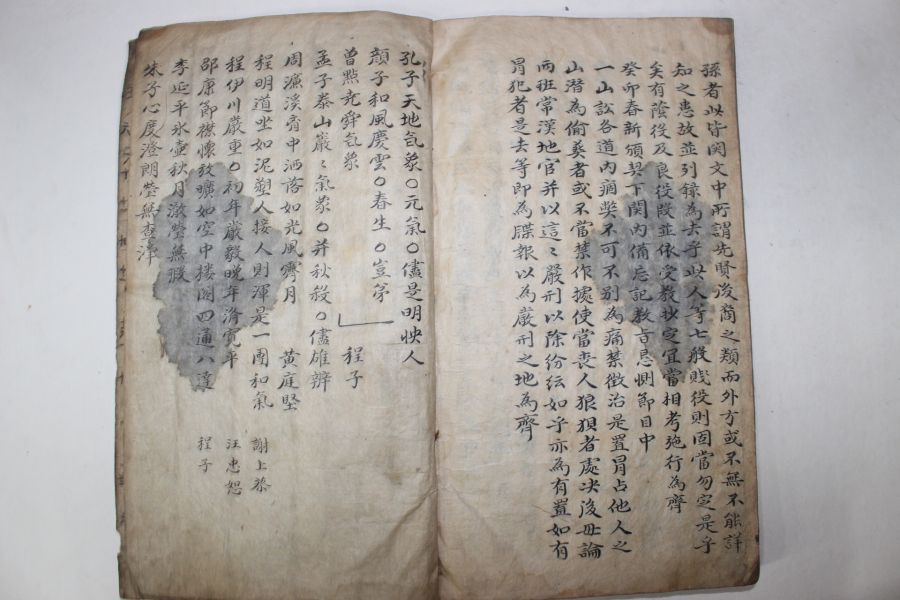 孫者以皆関文中所謂先賢後裔之類而外方或不無不能詳
知之患故並列錄為去乎此人等七般賤役則固當勿定是乎
矣有蔭役及良役段並依受教抄定宜當相考施行為齊
癸卯春新頒契下関內備忘記教吉忌惻節目中
一山訟各道內痼弊不可不別為痛禁徵治是置冒占他人之
山潛為偷葬者或不當禁作據使當喪人狼狽者處決後毋論
両班常漢地官并以這〻嚴刑以除紛紜如乎亦為有置如有
冒犯者是去等即為牒報以為嚴刑之地為齊
孔子天地氣象○元氣○儘是明快人
顔子和風慶雲○春生○豈弟
曾點堯舜氣象 程子
孟子泰山巖〻氣象○并秋殺○儘雄辨
周濂溪胷中洒落如光風霽月 黃庭堅
程明道坐如泥塑人接人則渾是一團和氣 謝上蔡
程伊川嚴重○初年嚴毅晚年濟寬平 汪忠恕
邵康節襟懷放曠如空中楼閣四通八達 程子
李延平氷壺秋月澂瑩無瑕
朱子心度澄朗瑩無查滓